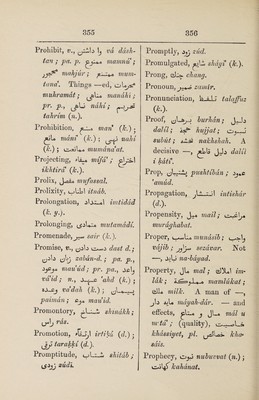 355
Prohibit, v., وا داشتن vá dásh-
tan ; pa. p. ممنوع mamnú‘ ;
محجور mahjúr ; ممتنع mum-
tana‘. Things —ed, محرمات
muhramát ; مناهی manáhí ;
pr. p., ناهی náhí ; تحریم
tahrím (n.).
Prohibition, منع man‘ (k.) ;
مانع máni‘ (k.) ; نهی nahí
(k.) ; ممانعت mumána‘at.
Projecting,
ikhtirá‘ (k.).
Prolix, مفصل mufassal.
Prolixity, اطناب itnáb.
Prolongation, امتداد imtidád
(k. y.).
Prolonging, متمادی mutamádí.
Promenade, سیر sair (k.).
Promise, n., دست دادن dast d. ;
زبان دادن zabán-d. ; pa. p.,
موعود mau‘úd ; pr. pa., واعد
vá‘id ; n., عهد ‘ahd (k.) ;
وعده va‘dah (k.) ;
paimán ; وعد mau‘id.
Promontory, شناخ shinákh ;
راس rás.
Promotion, ارتقا irtiká (d.) ;
ترقی tarakkí (d.).
Promptitude, شتاب shitáb ;
زودی zúdí.
356
Promptly, زود zúd.
Promulgated, شایع sháyi‘ (k.).
Prong, چنگ chang.
Pronoun, ضمیر zamír.
Pronunciation, تلفظ talaffuz
(k.).
Proof, برهان burhán ; دلیل
dalíl ; حجت hujjat ; ثبوت
subút ; nakhshah. A
decisive —, دلیل قاطع dalíl
i káti‘.
Prop, پشتیبان pushtíbán ; عمود
‘amúd.
Propagation, انتشار intishár
(d.).
Propensity, میل mail ;
murághabat.
Proper, مناسب munásib ; واجب
vájib ; سزاوار sezávar. Not
—, نا باید ná-báyad.
Property, مال mal ; املاک im-
lák ; مملکت mamlákat ;
ملک milk. A man of —,
مایه دار máyah-dár. — and
effects, مال و متاع mál ú
m‘tá‘ ; (quality), خاصیت
khássiyet, pl. خصائص kha-
sáis.
Prophecy, نبوت nubuvvat (n.) ;
کهانت kahánat.